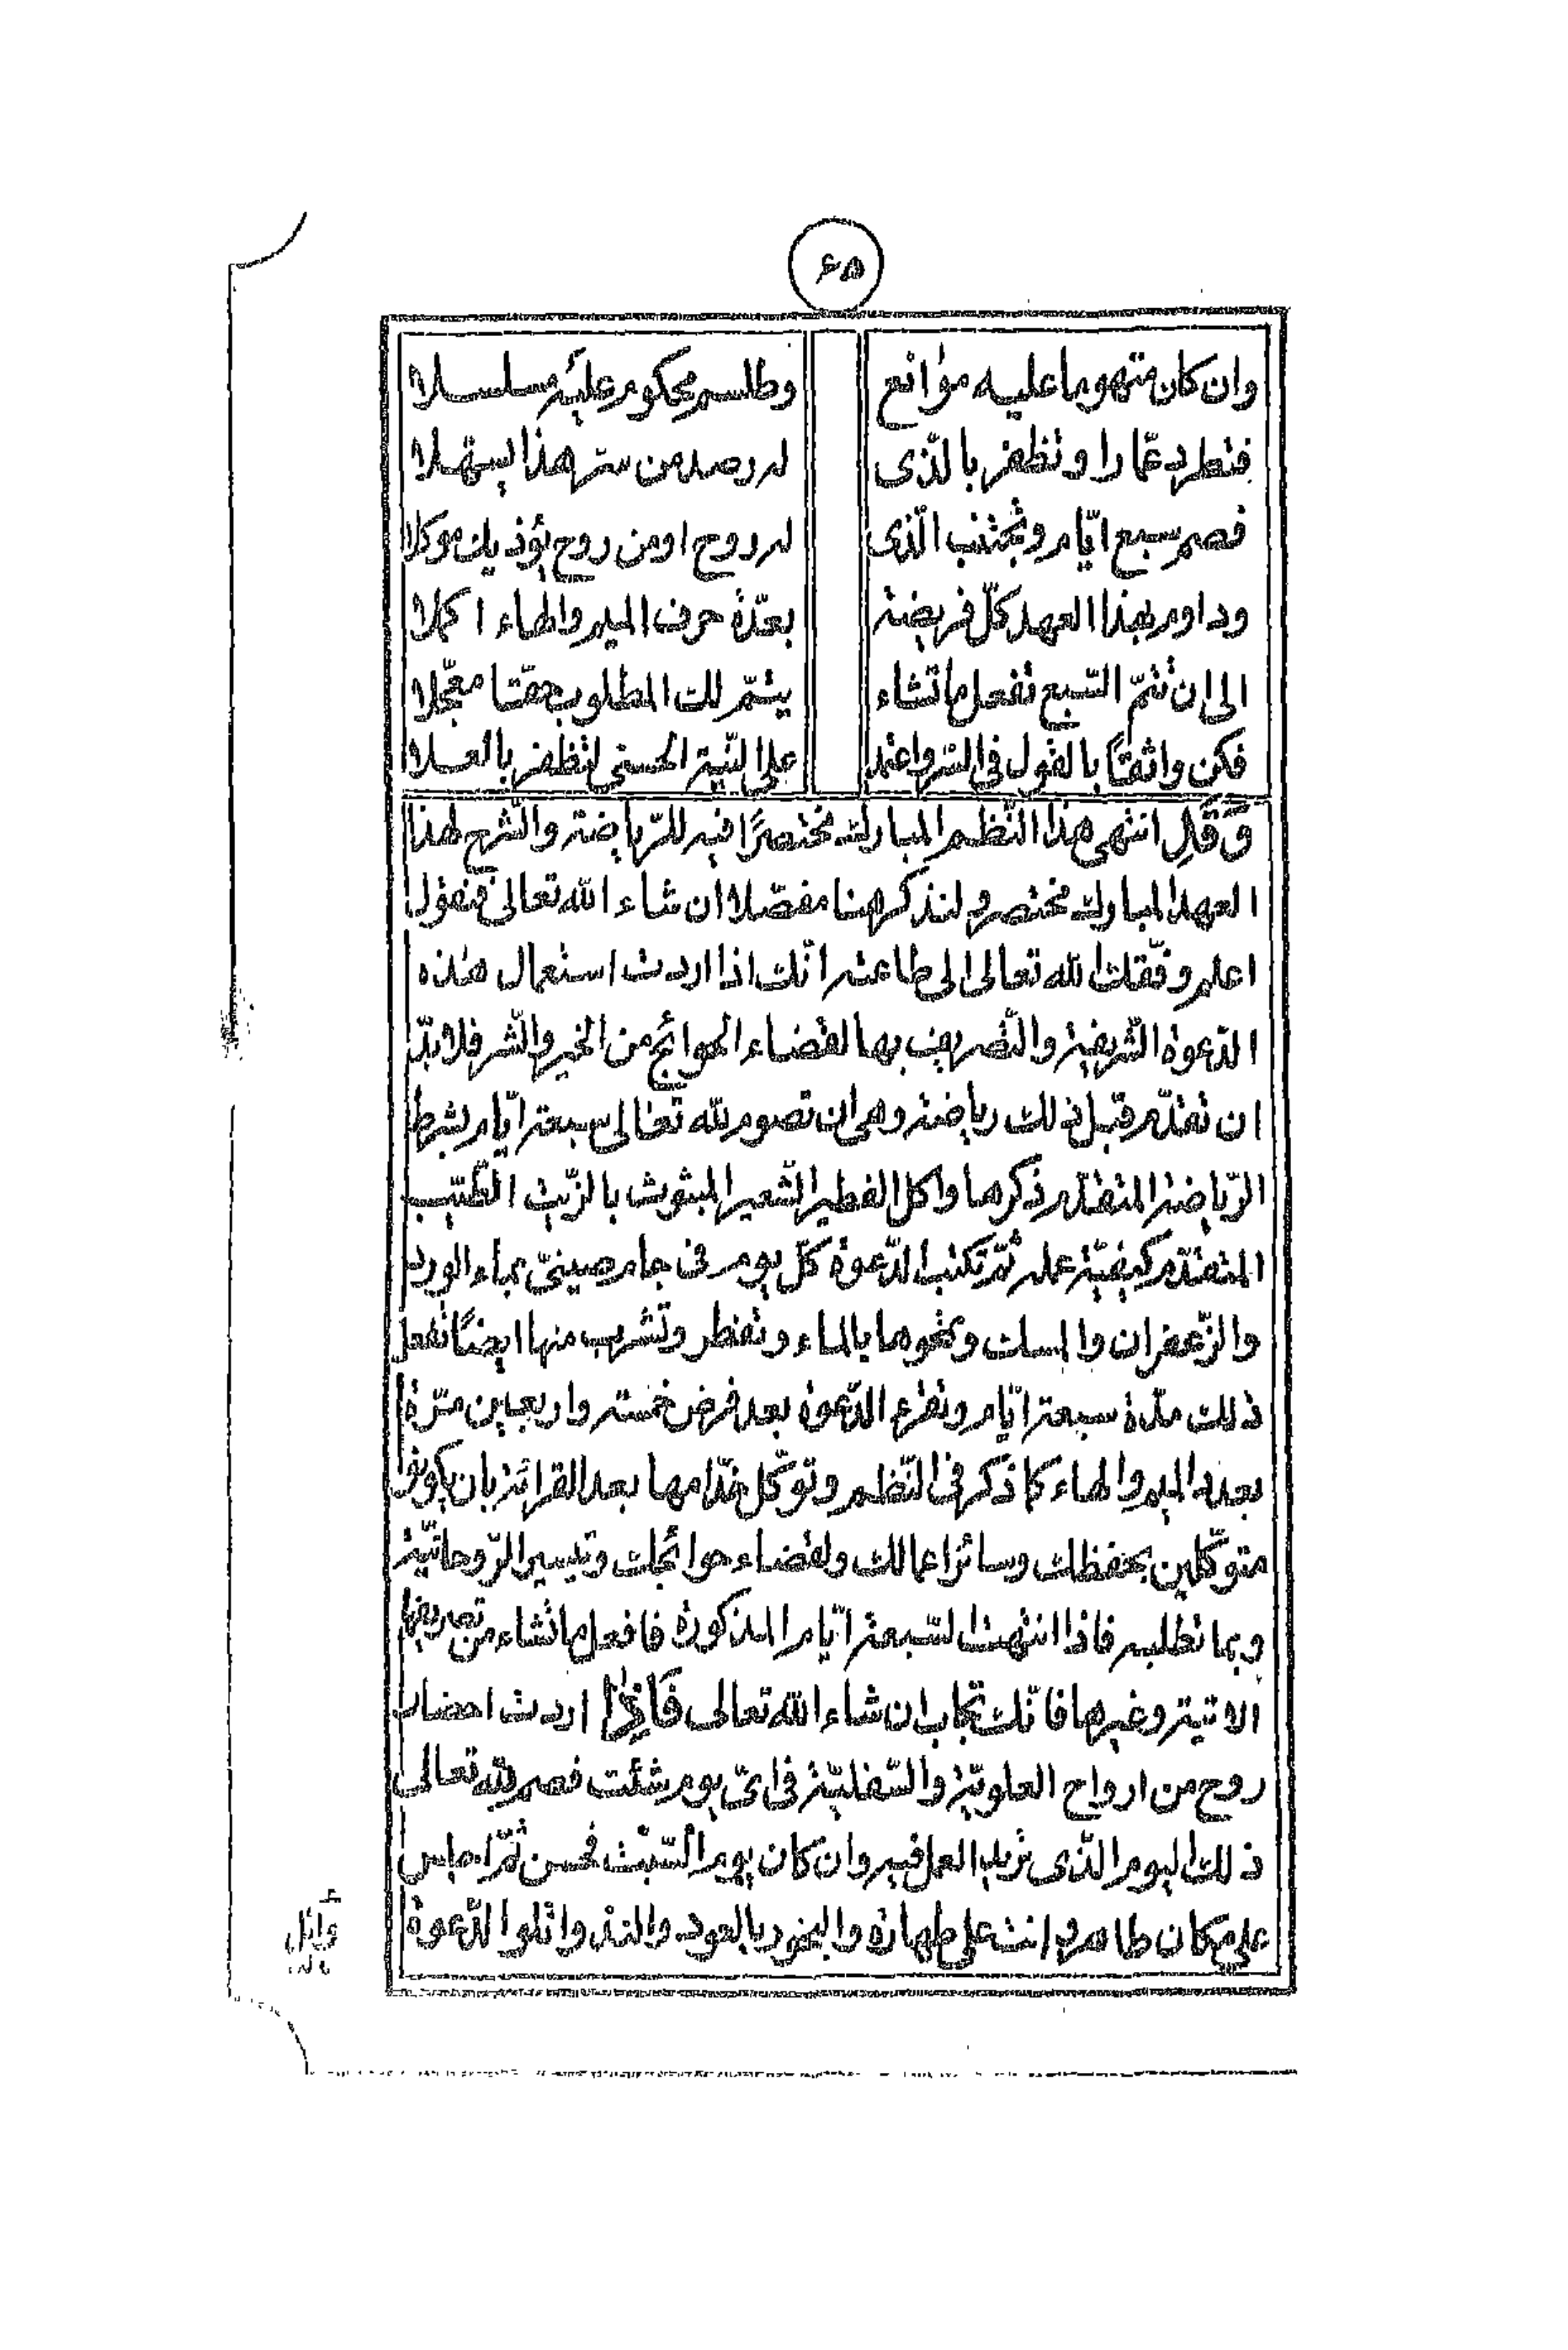 ٤٥
وان كان متهوما عليه موانع وطلسم محكوم عليه مسلسلا
فتطرد عمّارا وتظفر بالّذى له رصد من سرّ هذا ليستهلا
فصم سبع ايّام وتجتنب الّذى له روح او من روح يؤذيك موكلا
وداوم بهذا العهد كلّ فريضة بعدّة حرف الميم والهاء اكملا
الى ان تتمّ السّبع تفعل ما تشاء يتمّ لك المطلوب حقّا معجّلا
فكن واثقًا بالقول فى السّر واعتمد على النّية الحسنى لتظفر بالعلا
وَقَد انتهى هذا النّظم المبارك مختصرًا فيه للرّياضة والشّرح لهذا
العهد المبارك مختصر ولنذكر هنا مفصّلا ان شاء الله تعالى فنقول
اعلم وفّقك الله تعالى الى طاعته انّك اذا اردت استعمال هذه
الدّعوة الشّريفة والتّصريف بها لقضاء الحوائج من الخير والشّر فلا بدّ
ان تقدّم قبل ذلك رياضة وهى ان تصوم لله تعالى سبعة ايّام بشرط
الرّياضة المتقدّم ذكرها واكل الفطير الشّعير المبثوث بالزّيت الطّيّب
المتقدّم كيفيّة عمله ثمّ تكتب الدّعوة كلّ يوم فى جام صينىّ بماء الورد
والزّعفران والمسك وتمحوها بالماء وتفطر وتشرب منها ايضًا تفعل
ذلك مدّة سبعة ايّام وتقرء الدّعوة بعد فرض خمسة واربعين مرّة
بعدد الميم والهاء كما ذكر فى النّظم وتوكّل خدّامها بعد القرائة بان يكونوا
متوكّلين بحفظك وسائر اعمالك ولقضاء حوائجك وتيسير الرّوحانيّة
وبما تطلبه فاذا انتهت السّبعة ايّام المذكورة فافعل ما تشاء من تصريفها
الاتية وغيرها فانّك تجاب ان شاء الله تعالى فَاِذَا اردت احضار
روح من ارواح العلويّة والسّفليّة فى اىّ يوم شئت فصم لله تعالى
ذلك اليوم الّذى تريد العمل فيه وان كان يوم السّبت فحسن ثُمَّ اجلس
على مكان طاهر وانت على طهارة والبخور بالعود والنّد واتلوا الدّعوة